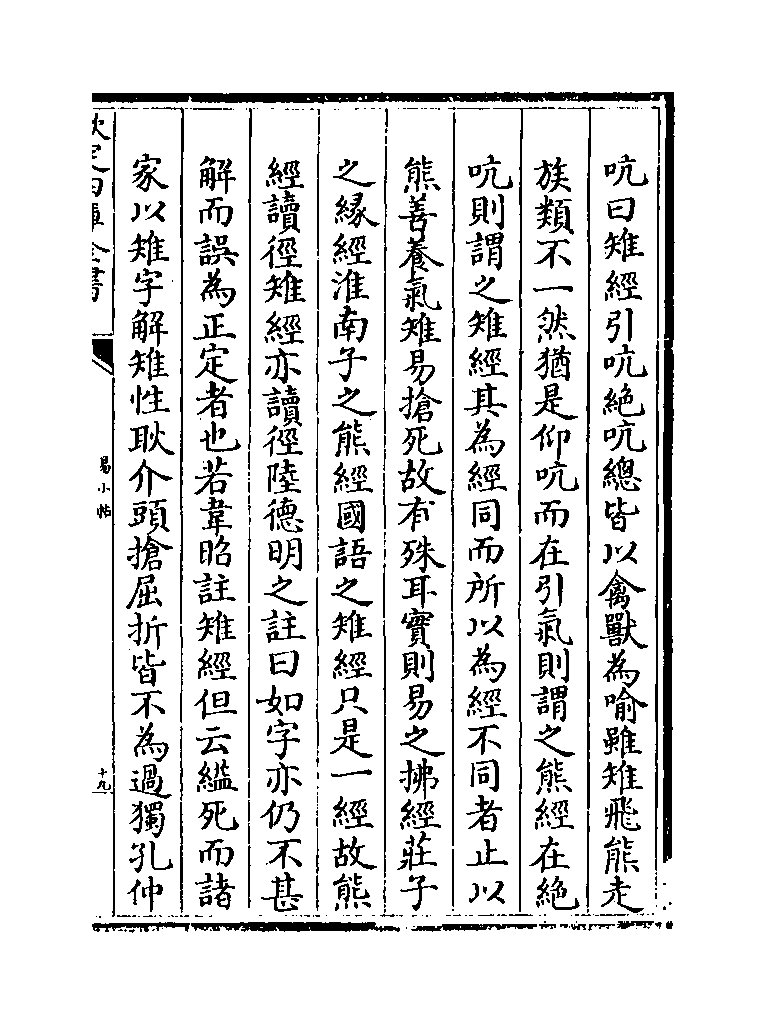 吭曰雉經引吭絶吭總皆以禽獸為喻雖雉飛熊走
族類不一然猶是仰吭而在引氣則謂之熊經在絶
吭則謂之雉經其為經同而所以為經不同者止以
熊善養氣雉易搶死故有殊耳實則易之拂經莊子
之緣經淮南子之熊經國語之雉經只是一經故熊
經讀徑雉經亦讀徑陸德明之註曰如字亦仍不甚
解而誤為正定者也若韋昭註雉經但云縊死而諸
家以雉字解雉性耿介頭搶屈折皆不為過獨孔仲
欽定四庫全書
易小帖
十九